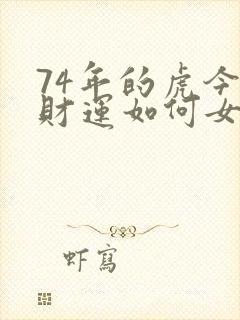 74年的虎今
財運如何女
虾寫